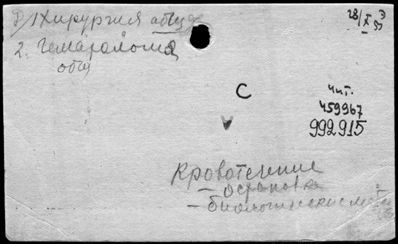 1 Хирургия общая
28/X 53
2. Гематология
общ
С
Чит.
459967
992915
Кровотечение
- остановка
- биологические мет